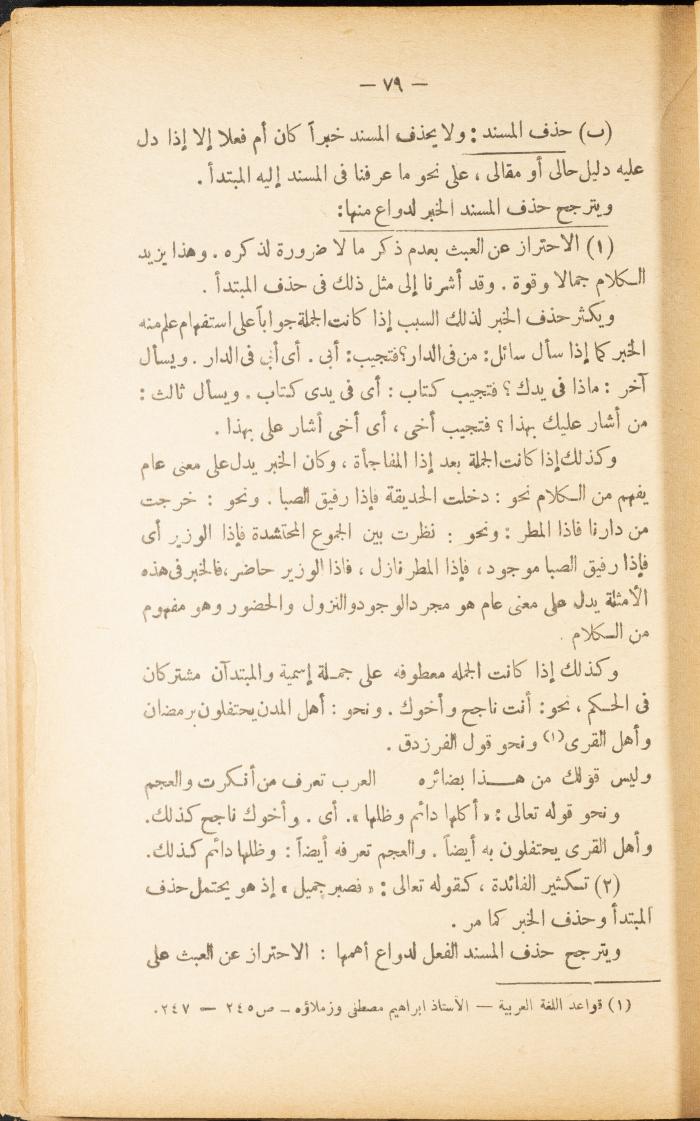 — ٧٩ —
(ب) حذف المسند : ولا يحذف المسند خبراً كان أم فعلا إلا إذا دل
عليه دليل حالى أو مقالى ، على نحو ما عرفنا فى المسند إليه المبتدأ .
ويترجح حذف المسند الخبر لدواع منها :
(١) الاحتراز عن العبث بعدم ذكر ما لا ضرورة لذكره . وهذا يزيد
الكلام جمالا وقوة . وقد أشرنا إلى مثل ذلك فى حذف المبتدأ .
ويكثر حذف الخبر لذلك السبب إذا كانت الجملة جواباً على استفهام علم منه
الخبر كما إذا سأل سائل : من فى الدار ؟ فتجيب : أبى . أى أبى فى الدار . ويسأل
آخر : ماذا فى يدك ؟ فتجيب كتاب : أى فى يدى كتاب . ويسأل ثالث :
من أشار عليك بهذا ؟ فتجيب أخى ، أى أخى أشار على بهذا .
وكذلك إذا كانت الجملة بعد إذا المفاجأة ، وكان الخبر يدل على معنى عام
يفهم من الكلام نحو : دخلت الحديقة فإذا رفيق الصبا . ونحو : خرجت
من دارنا فاذا المطر : ونحو : نظرت بين الجموع المحتشدة فإذا الوزير أى
فإذا رفيق الصبا موجود ، فإذا المطر نازل ، فاذا الوزير حاضر ، فالخبر فى هذه
الأمثلة يدل على معنى عام هو مجرد الوجود والنزول والحضور وهو مفهوم
من الكلام .
وكذلك إذا كانت الجمله معطوفه على جملة إسمية والمبتدآن مشتركان
فى الحكم ، نحو : أنت ناجح وأخوك . ونحو : أهل المدن يحتفلون برمضان
وأهل القرى (١) ونحو قول الفرزدق .
وليس قولك من هذا بضائره العرب تعرف من أنكرت والعجم
ونحو قوله تعالى : « أكلها دائم وظلها » . أى . وأخوك ناجح كذلك .
وأهل القرى يحتفلون به أيضاً . والعجم تعرفه أيضاً : وظلها دائم كذلك .
(٢) تكثير الفائدة ، كقوله تعالى : « فصبر جميل » إذ هو يحتمل حذف
المبتدأ وحذف الخبر كما مر .
ويترجح حذف المسند الفعل لدواع أهمها : الاحتراز عن العبث على
(١) قواعد اللغة العربية — الأستاذ ابراهيم مصطفى وزملاؤه — ص ٢٤٥ — ٢٤٧ .